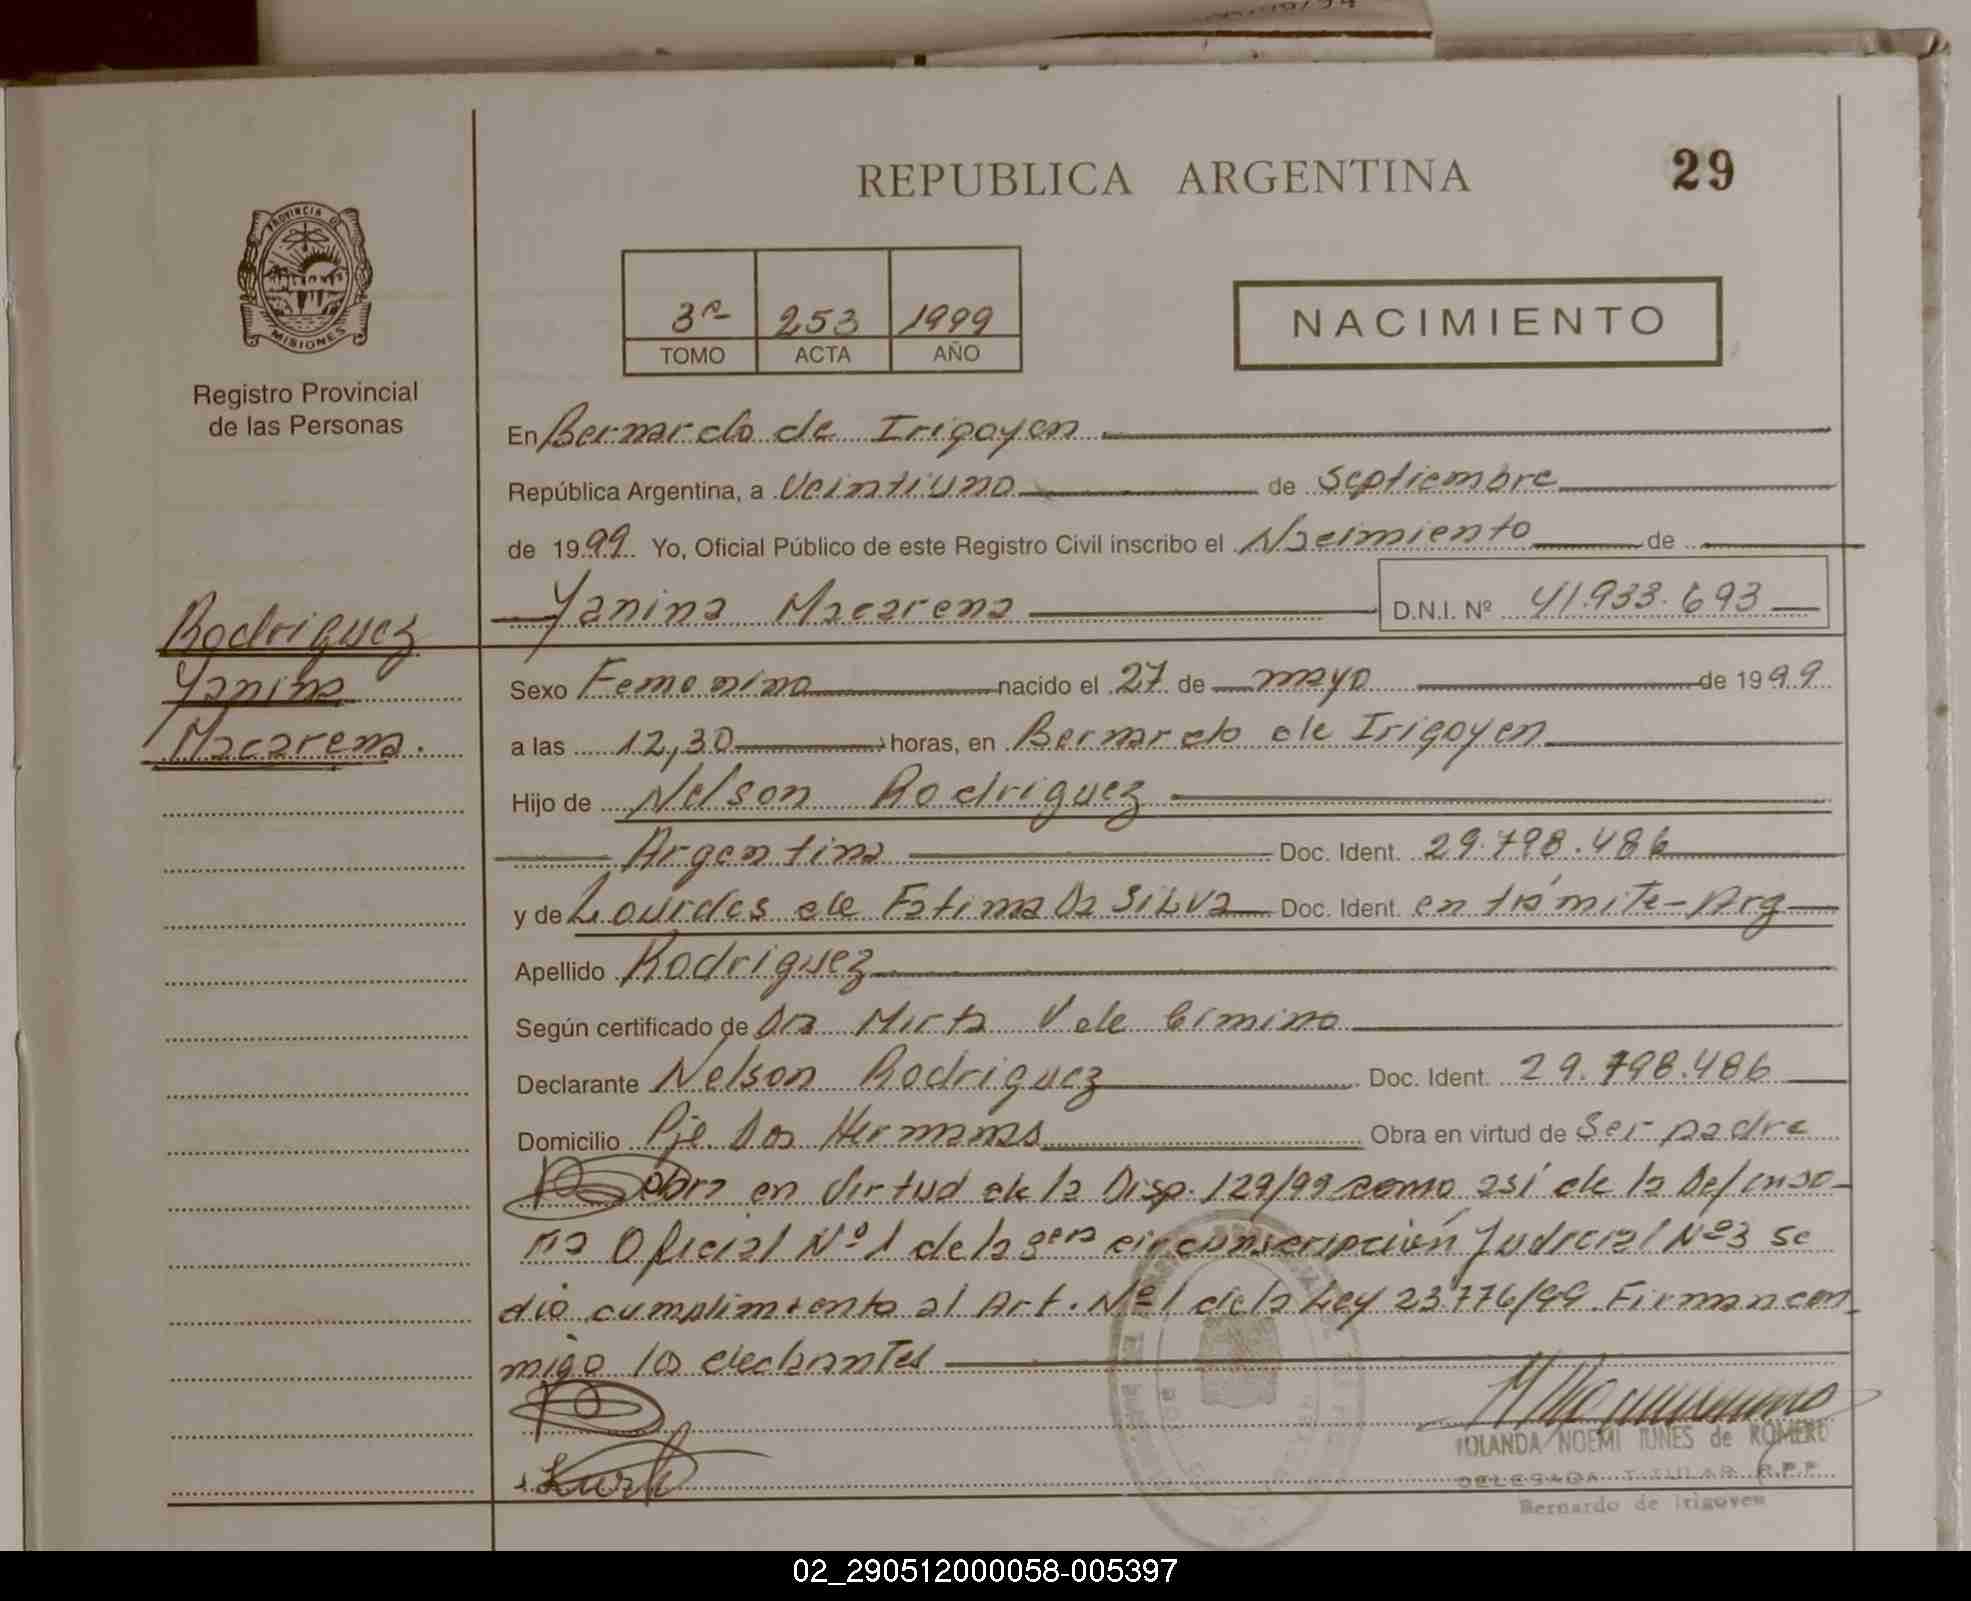 REPUBLICA ARGENTINA
29
PROVINCIA DE
MISIONES
Registro Provincial
de las Personas
3º 253 1999
TOMO ACTA AÑO
NACIMIENTO
En Bernardo de Irigoyen
República Argentina, a Veintiuno de Septiembre
de 1999. Yo, Oficial Público de este Registro Civil inscribo el Nacimiento de
Yanina Macarena D.N.I. Nº 41.933.693
Rodriguez
Yanina
Macarena.
Sexo Femenino nacido el 27 de mayo de 1999
a las 12,30 horas, en Bernardo de Irigoyen
Hijo de Nelson Rodriguez
Argentino Doc. Ident. 29.798.486
y de Lourdes de Fatima Da Silva Doc. Ident. en trámite-Arg
Apellido Rodriguez
Según certificado de Dra Mirta V de Cimino
Declarante Nelson Rodriguez Doc. Ident. 29.798.486
Domicilio Pje. Dos Hermanas Obra en virtud de Ser padre
obra en Virtud de la Disp. 129/99 como así de la Defenso-
ria Oficial Nº 1 de la 3era circunscripción Judicial Nº 3 se
dio cumplimiento al Art. Nº 1 de la Ley 23.776/99. Firman con
migo los declarantes
YOLANDA NOEMI TUNES de ROMERO
DELEGADA TITULAR R.P.P.
Bernardo de Irigoyen
02_290512000058-005397